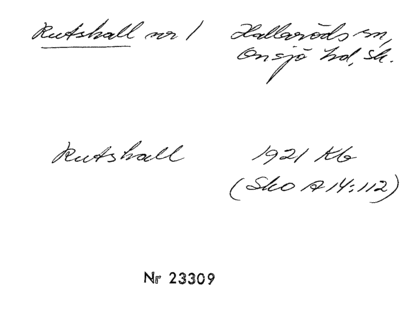 Rutshall nr 1 Hallaröds sn,
Onsjö hd, Sk.
Rutshall 1921 Kb
(Sko A 14:112)
Nr 23309